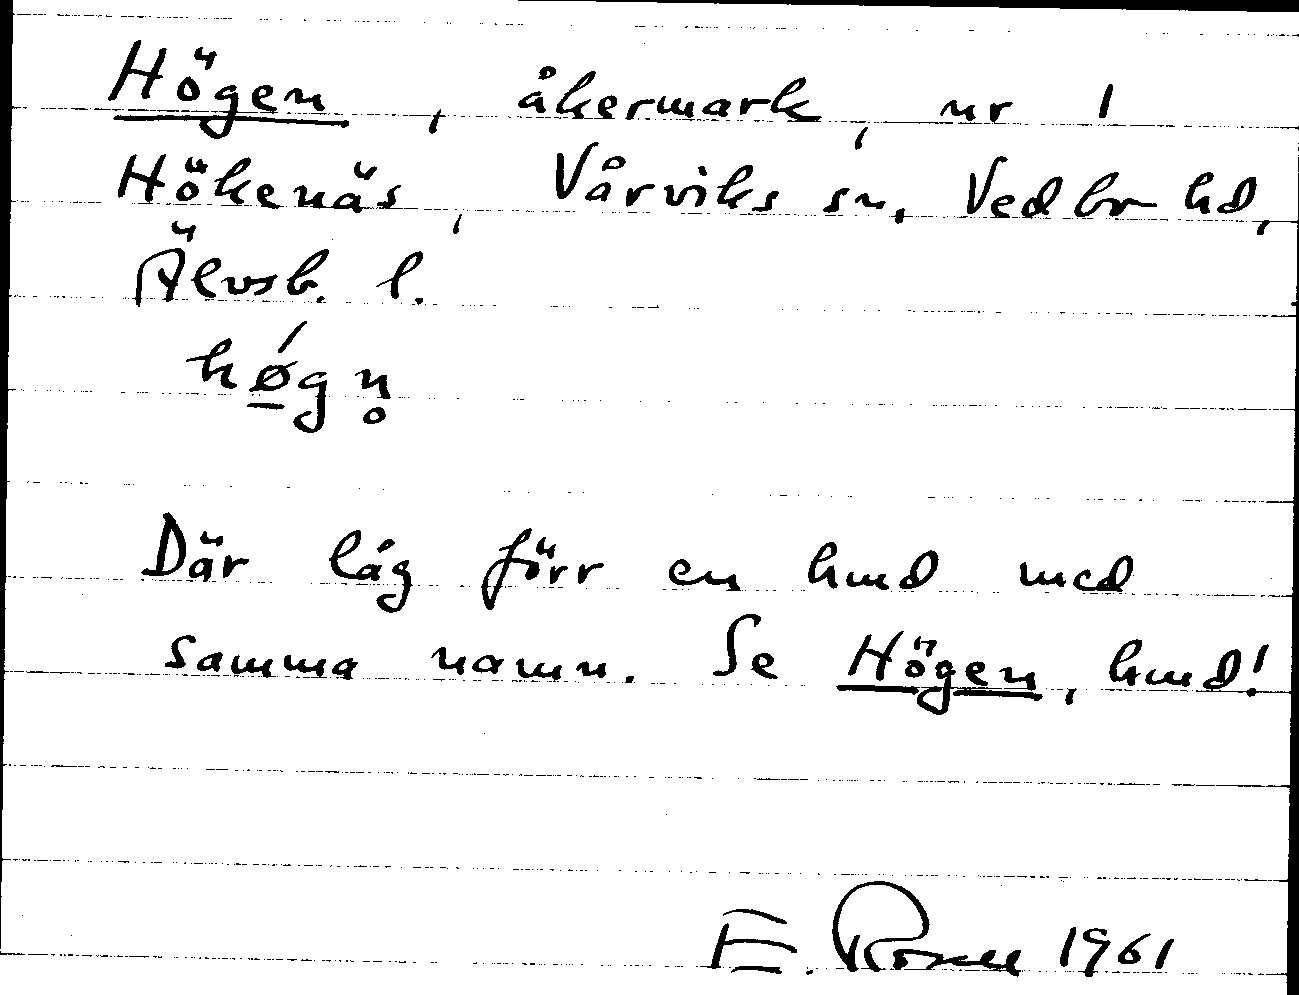 Högen, åkermark, nr 1
Hökenäs, Vårviks sn, Vedbo hd,
Älvsb. l.
hǿ̱gn̥
Där låg förr en hmd med
samma namn. Se Högen, hmd!
E. Rosell 1961